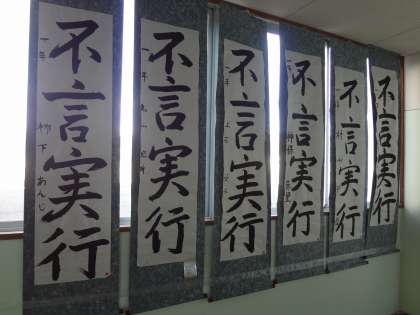 不言実行
一年 柳下あんじ
不言実行
一年
不言実行
不言実行
不言実行
不言実行